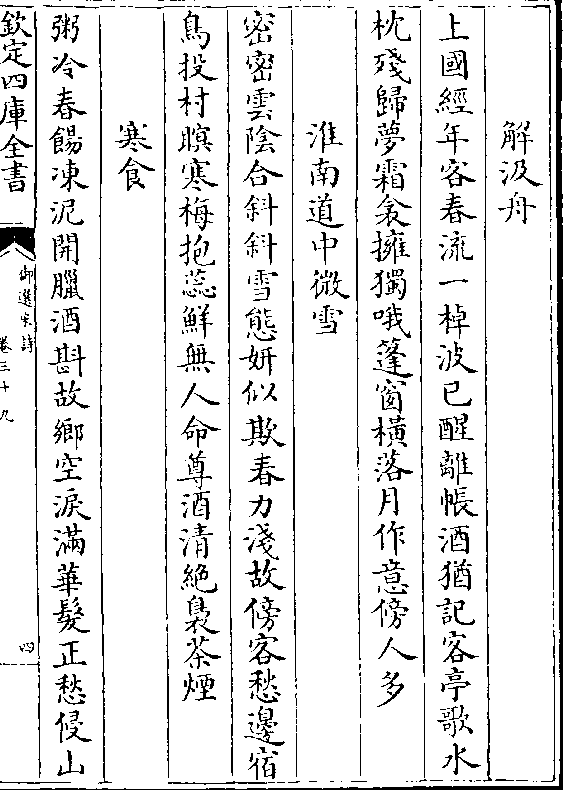 解汲舟
上國經年客春流一棹波已醒離帳酒猶記客亭歌水
枕殘歸夢霜衾擁獨哦篷窗橫落月作意傍人多
淮南道中微雪
密密雲陰合斜斜雪態妍似欺春力淺故傍客愁邊宿
鳥投村暝寒梅抱蕊鮮無人命尊酒清絶裊茶煙
寒食
粥冷春餳凍泥開臘酒斟故鄉空淚滿華髮正愁侵山
欽定四庫全書
御選宋詩
卷三十九
四